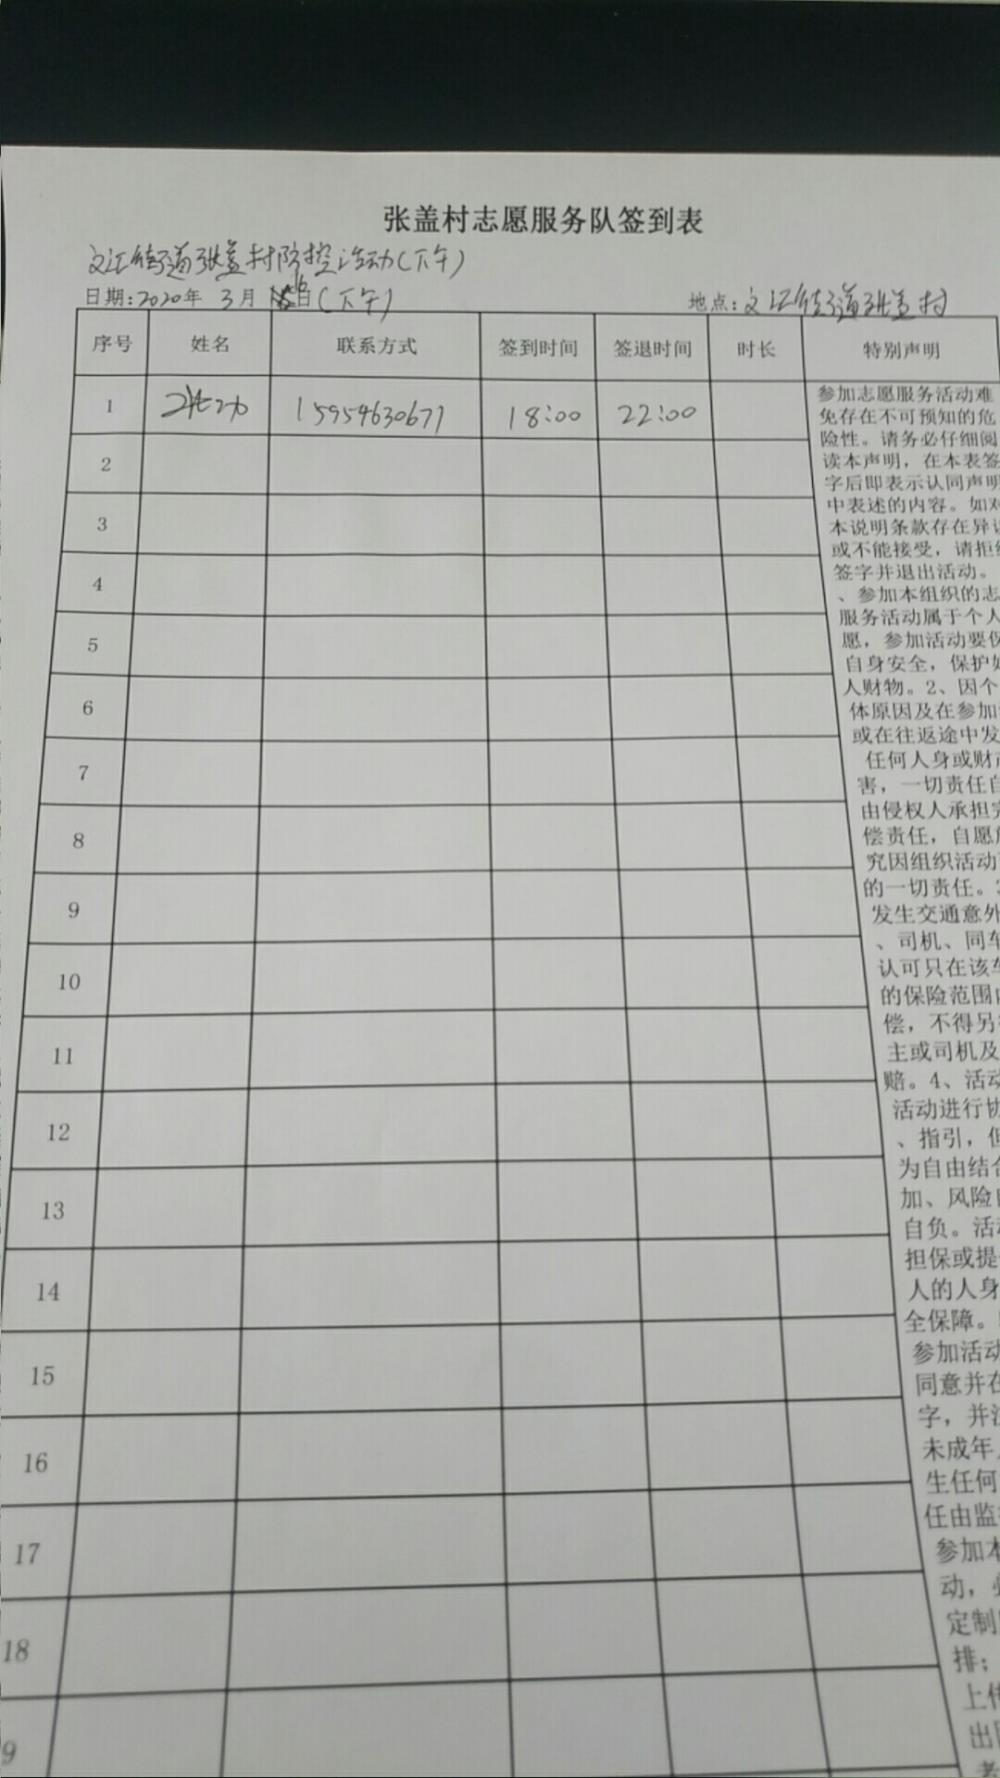 张盖村志愿服务队签到表
文汇街道张盖村防控活动(下午)
日期:2020年 3月 16日(下午) 地点:文汇街道张盖村
序号 姓名 联系方式 签到时间 签退时间 时长 特别声明
1 15954630671 18:00 22:00
2
3
4
5
6
7
8
9
10
11
12
13
14
15
16
17
18
9
参加志愿服务活动难
免存在不可预知的危
险性。请务必仔细阅
读本声明，在本表签
字后即表示认同声明
中表述的内容。如对
本说明条款存在异议
或不能接受，请拒绝
签字并退出活动。
、参加本组织的志
服务活动属于个人
愿，参加活动要保
自身安全，保护好
人财物。2、因个
体原因及在参加
或在往返途中发
任何人身或财产
害，一切责任自
由侵权人承担完
偿责任，自愿放
究因组织活动
的一切责任。
发生交通意外
、司机、同车
认可只在该车
的保险范围内
偿，不得另
主或司机及
赔。4、活动
活动进行协
、指引，但
为自由结合
加、风险
自负。活动
担保或提
人的人身
全保障。
参加活动
同意并在
字，并注
未成年
生任何
任由监
参加本
动，
定制
排；
上传
出